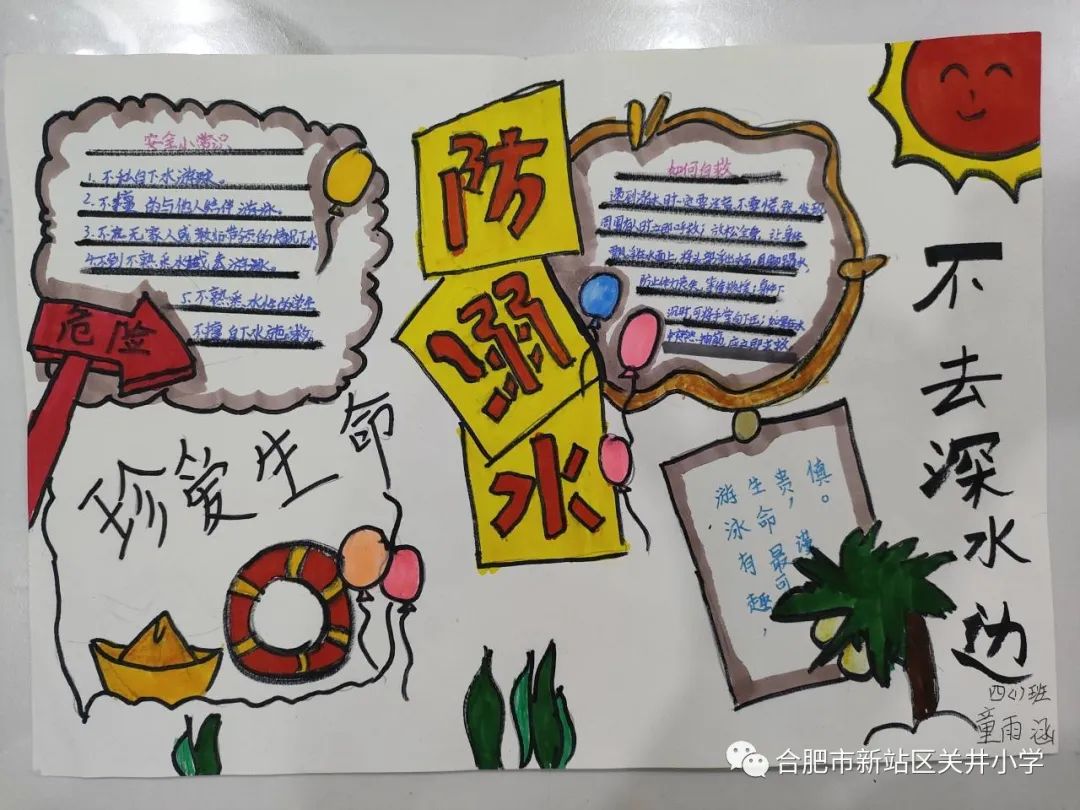 安全小常识
1.不私自下水游泳。
2.不擅自与他人结伴游泳。
3.不在无家人或教师带领的情况下水
4.不到不熟悉水域去游泳。
5.不熟悉水性的学生
不擅自下水施救。
危险
珍爱生命
防
溺
水
如何自救
遇到溺水时一定要沉着不要慌张,发现
周围有人时立即呼救;放松全身,让身体
漂浮在水面上,将头部浮出水面,用脚踢水
防止体力丧失,等待救援;身体下
沉时,可将手掌向下压;如果在水
中突然抽筋,应立即求救
游泳有趣,
生命最可
贵,谨
慎。
不去深水边
四(1)班
童雨涵
合肥市新站区关井小学